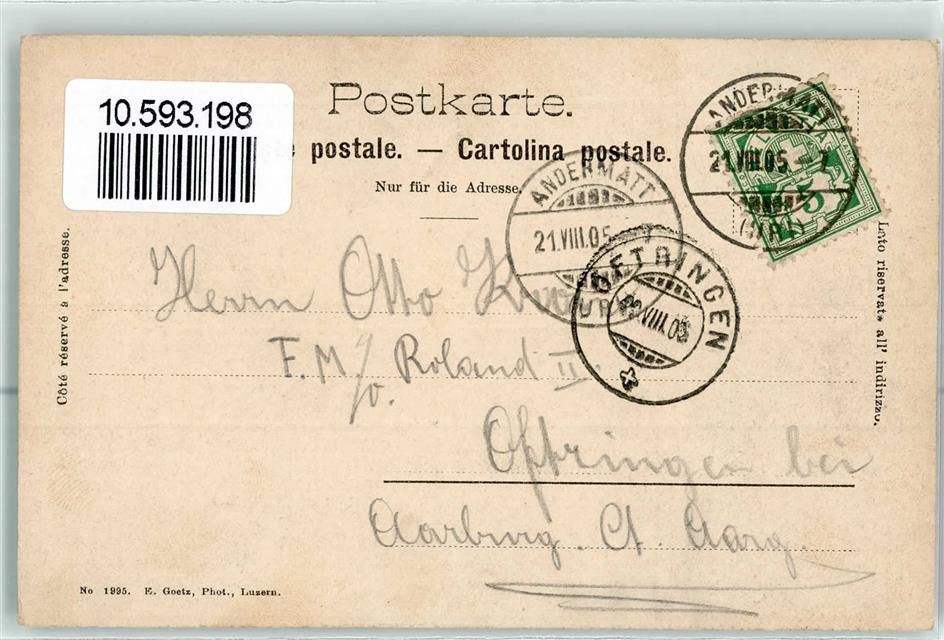 10.593.198
Postkarte.
postale. — Cartolina postale.
Nur für die Adresse.
ANDERMATT
21.VIII.05.-7
(URI)
5
ANDERMATT
21.VIII.05.-7
(URI)
22.VIII.05
Côté réservé à l'adresse.
Lato riservato all' indirizzo.
Herrn Otto
F. M. c/o. Roland II
Oftringen bei
Aarburg. Ct. Aarg.
No 1995. E. Goetz, Phot., Luzern.